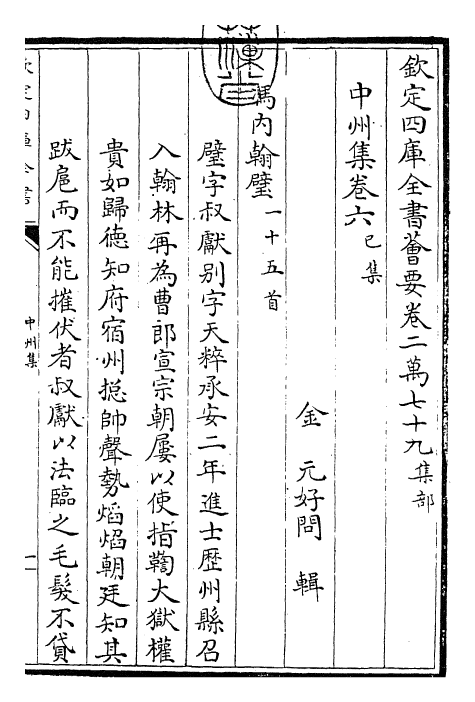 欽定四庫全書薈要卷二萬七十九集部
中州集卷六 已集
金 元好問 輯
馮內翰璧一十五首
璧字叔獻別字天粹承安二年進士歷州縣召
入翰林再為曹郎宣宗朝屢以使指鞫大獄權
貴如歸德知府宿州總帥聲勢熖熖朝廷知其
跋扈而不能摧伏者叔獻以法臨之毛髮不貸
中州集
一